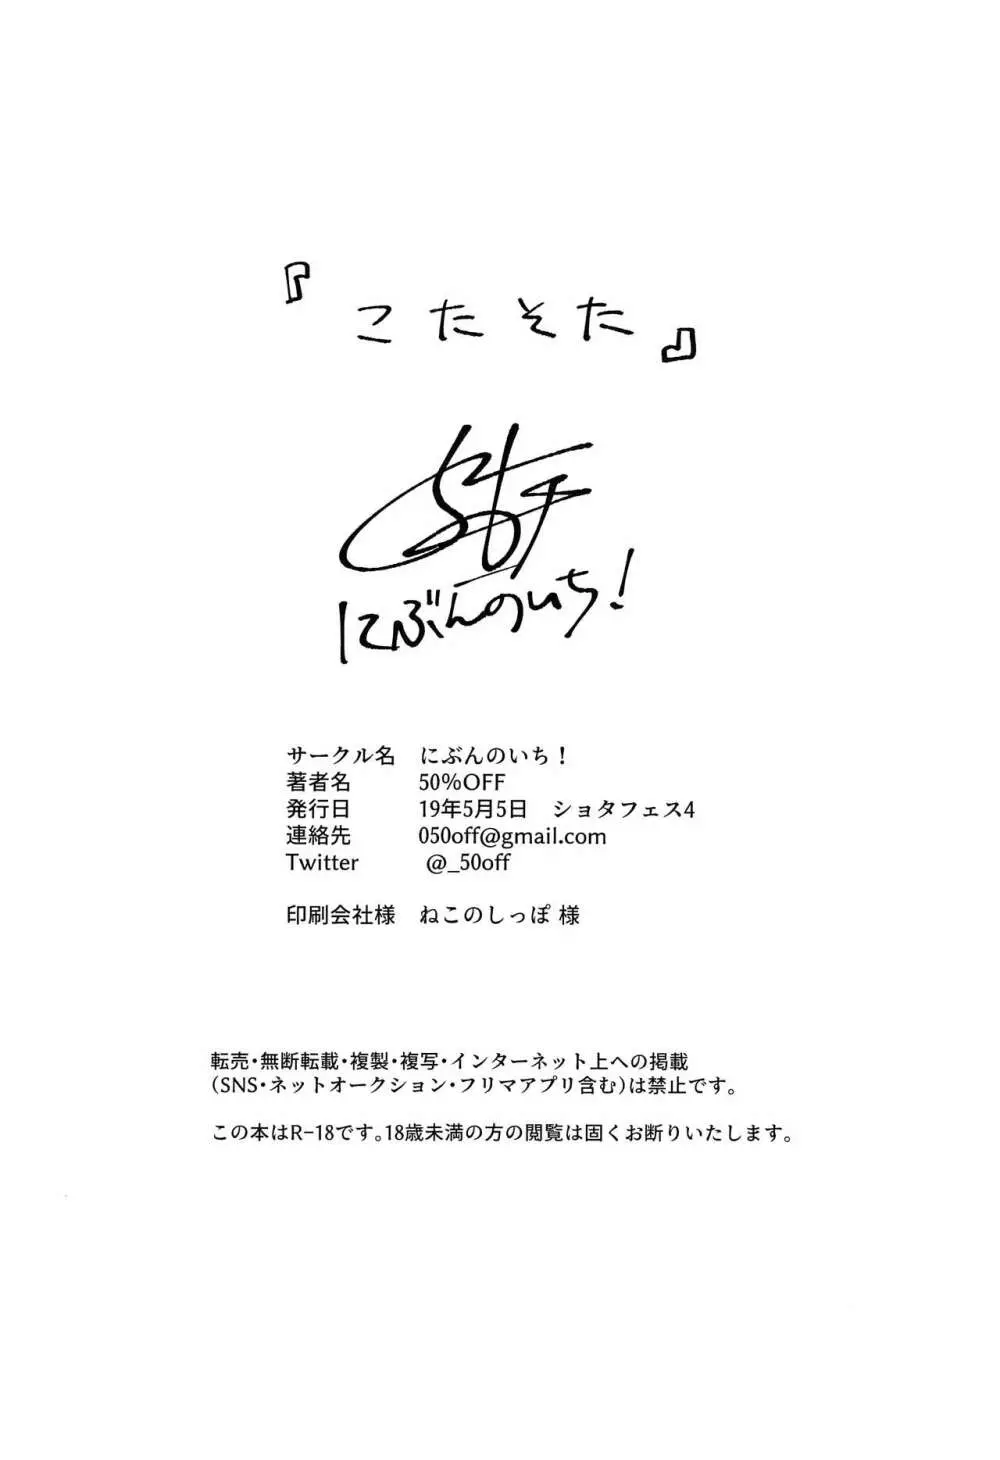 『こたそた』
にぶんのいち！
サークル名　にぶんのいち！
著者名　50%OFF
発行日　19年5月5日　ショタフェス4
連絡先　050off@gmail.com
Twitter　@_50off
印刷会社様　ねこのしっぽ 様
転売・無断転載・複製・複写・インターネット上への掲載
（SNS・ネットオークション・フリマアプリ含む）は禁止です。
この本はR-18です。18歳未満の方の閲覧は固くお断りいたします。